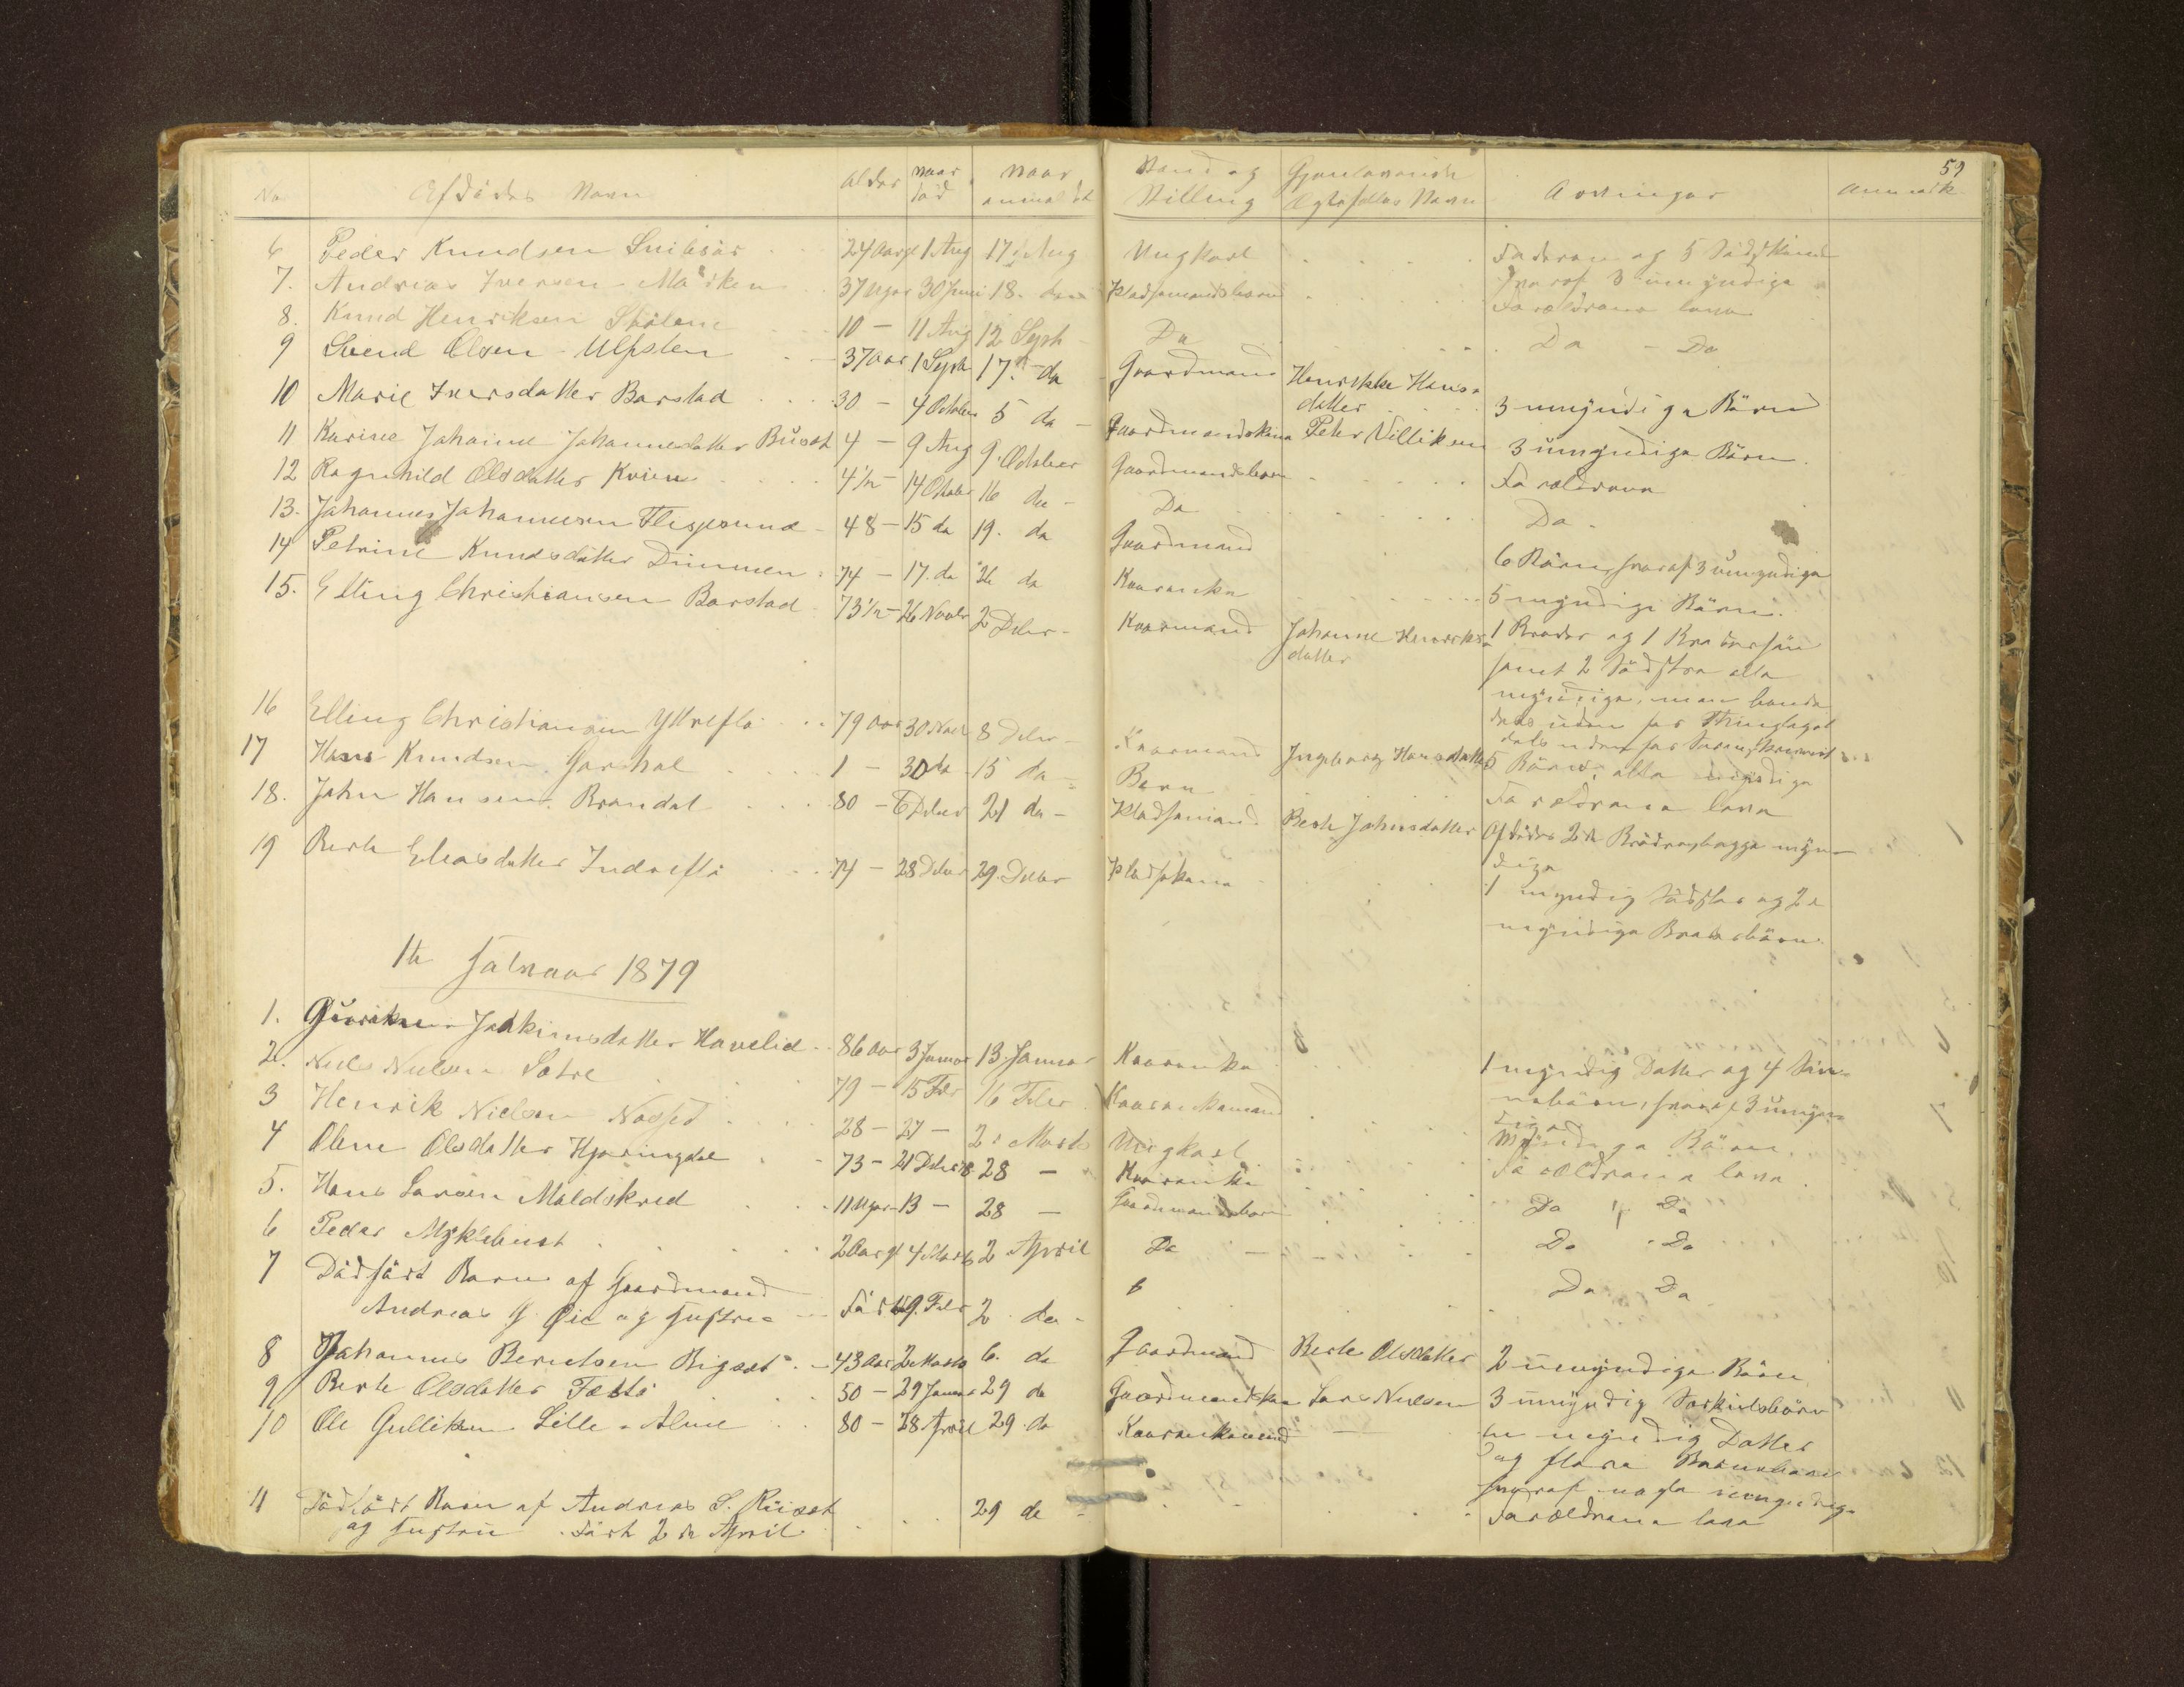 59
No Afdødes Navn Alder Naar død Naar anmeldt Stand og Stilling Gjenlevende Ægtefælles Navn Arvinger Anmærk
6 Peder Knudsen 24 Aar 1 Aug 17 Aug Ungkarl Faderen og 5 Sødskend
7. Andreas Iversen 37 Uger 30 Juni 18. da Pladsmandsbarn hvoraf 3 umyndige
Forældrene leve
8. Knud Henriksen 10 – 11 Aug 12 Septr Do Do – Do
9 Svend Olsen Ulfsten 37 Aar 1 Septr 17. da Gaardmand Henrikke Hansdatter 3 umyndige Børn
10 Marie Iversdatter Barstad 30 – 4 October 5 da Gaardmandskone Peter Villiksen 3 umyndige Børn
11 Karine Johanne Johannesdatter 4 – 9 Aug 9. October Gaardmandsbarn Forældrene
12 Ragnhild Olsdatter Kvien 4½ – 14 October 16 da – Do Do.
13. Johannes Johannesen 48 – 15 da 19. da Gaardmand 6 Børn, hvoraf 3 umyndige
14 Petrine Knudsdatter Dimmen 74 – 17. da 26 da Kaarenke 5 myndige Børn.
15. Elling Christiansen Barstad 73½ – 26 Novbr 2 Debr – Kaarmand Johanne Henriksdatter 1 Broder og 1 Brodersøn
samt 2 Sødstre alle
myndige, men
16 Elling Christiansen Yttreflø 79 Aar 30 Novb 8 Debr – Kaarmand Ingeborg Hansdatter 5 Børn, alle myndige
17 Hans Knudsen Garshol 1 – 30 da 15 da – Barn Forældrene leve
18. John Hansen Brandal 80 – 6 Debr 21 da – Pladsmand Berte Johnsdatter Afdødes 2de Brødre, begge myndige
19 Berte Eliasdatter Indreflø 74 – 28 Debr 29. Debr Pladskone 1 myndig Søster og 2de
myndige Broderbørn.
1te Halvaar 1879
1. Joakimsdatter Havelid 86 Aar 3 Januar 13. Januar Kaarenke 1 myndig Datter og 4 Sønnebørn, hvoraf 3 umyndige
2. Niels Nielsen Sætre 79 – 15 Febr 16 Febr Kaarenkemand Myndige Børn.
3 Henrik Nielsen 28 – 27 – 2. Marts Ungkarl Forældrene leve.
4 Oline Olsdatter Hjøringdal 73 – 21 Debr 78 28 – Kaarenke Do Do
5. Hans Larsen Maldskred 11 Uger 13 – 28 – Gaardmandsbarn Do Do
6 Peder Myklebust 2 Aar 4 Marts 2 April Do Do Do
7 Dødfødt Barn af Gaardmand
Andreas Øie og Hustrue Født 19. Febr 2 da –
8 Johannes Berntsen Rigsæt 43 Aar 2 Marts 6. da Gaardmand Berte Olsdatter 2 umyndige Børn
9 Berte Olsdatter 50 – 29 Januar 29 da Gaardmandskone Lars Nielsen 3 umyndig Særkuldsbørn
10 Ole Gulliksen Lille-Alme 80 – 28 April 29. da Kaarenkemand – en myndig Datter
og flere Børnebørn
hvoraf nogle umyndige
11 Dødfødt Barn af Andreas S. 29 da – Forældrene leve
og Hustru. Født 2de April